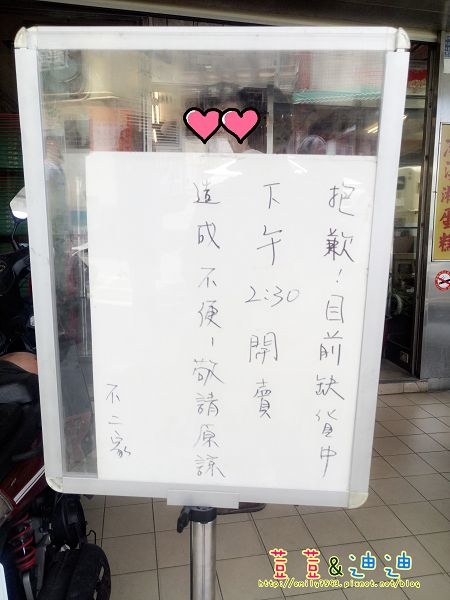 抱歉！目前缺貨中
下午2:30開賣
造成不便，敬請原諒
不二家
蛋糕
荳荳&迪迪
http://emily7543.pixnet.net/blog